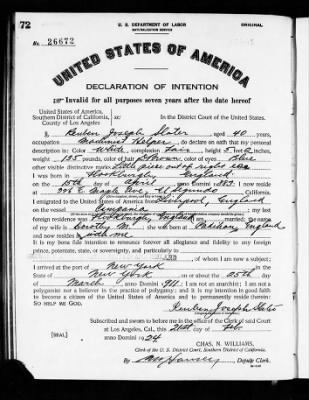 72
U. S. DEPARTMENT OF LABOR
NATURALIZATION SERVICE
ORIGINAL
No. 26672
UNITED STATES OF AMERICA
DECLARATION OF INTENTION
Invalid for all purposes seven years after the date hereof
United States of America,
Southern District of California, ss:
County of Los Angeles
In the District Court of the United States.
I, Reuben Joseph Slater, aged 40 years,
occupation Machinist Helper, do declare on oath that my personal
description is: Color White, complexion Fair, height 5 feet inches,
weight 135 pounds, color of hair Brown, color of eyes Blue
other visible distinctive marks Little piece out of right ear
I was born in England
on the 15th day of April, anno Domini 1883; I now reside
at Maple Ave., El Segundo, California.
I emigrated to the United States of America from Liverpool, England
on the vessel Campania; my last
foreign residence was England; I am married; the name
of my wife is Dorothy M.; she was born at England
and now resides at with me
It is my bona fide intention to renounce forever all allegiance and fidelity to any foreign
prince, potentate, state, or sovereignty, and particularly to
, of whom I am now a subject;
I arrived at the port of New York, in the
State of New York, on or about the 25th day
of March, anno Domini 1911; I am not an anarchist; I am not a
polygamist nor a believer in the practice of polygamy; and it is my intention in good faith
to become a citizen of the United States of America and to permanently reside therein:
SO HELP ME GOD.
Reuben Joseph Slater
Subscribed and sworn to before me in the office of the Clerk of said Court
at Los Angeles, Cal., this 21st day of Feb.
[SEAL]
anno Domini 1924
CHAS. N. WILLIAMS,
Clerk of the U. S. District Court, Southern District of California.
By , Deputy Clerk.